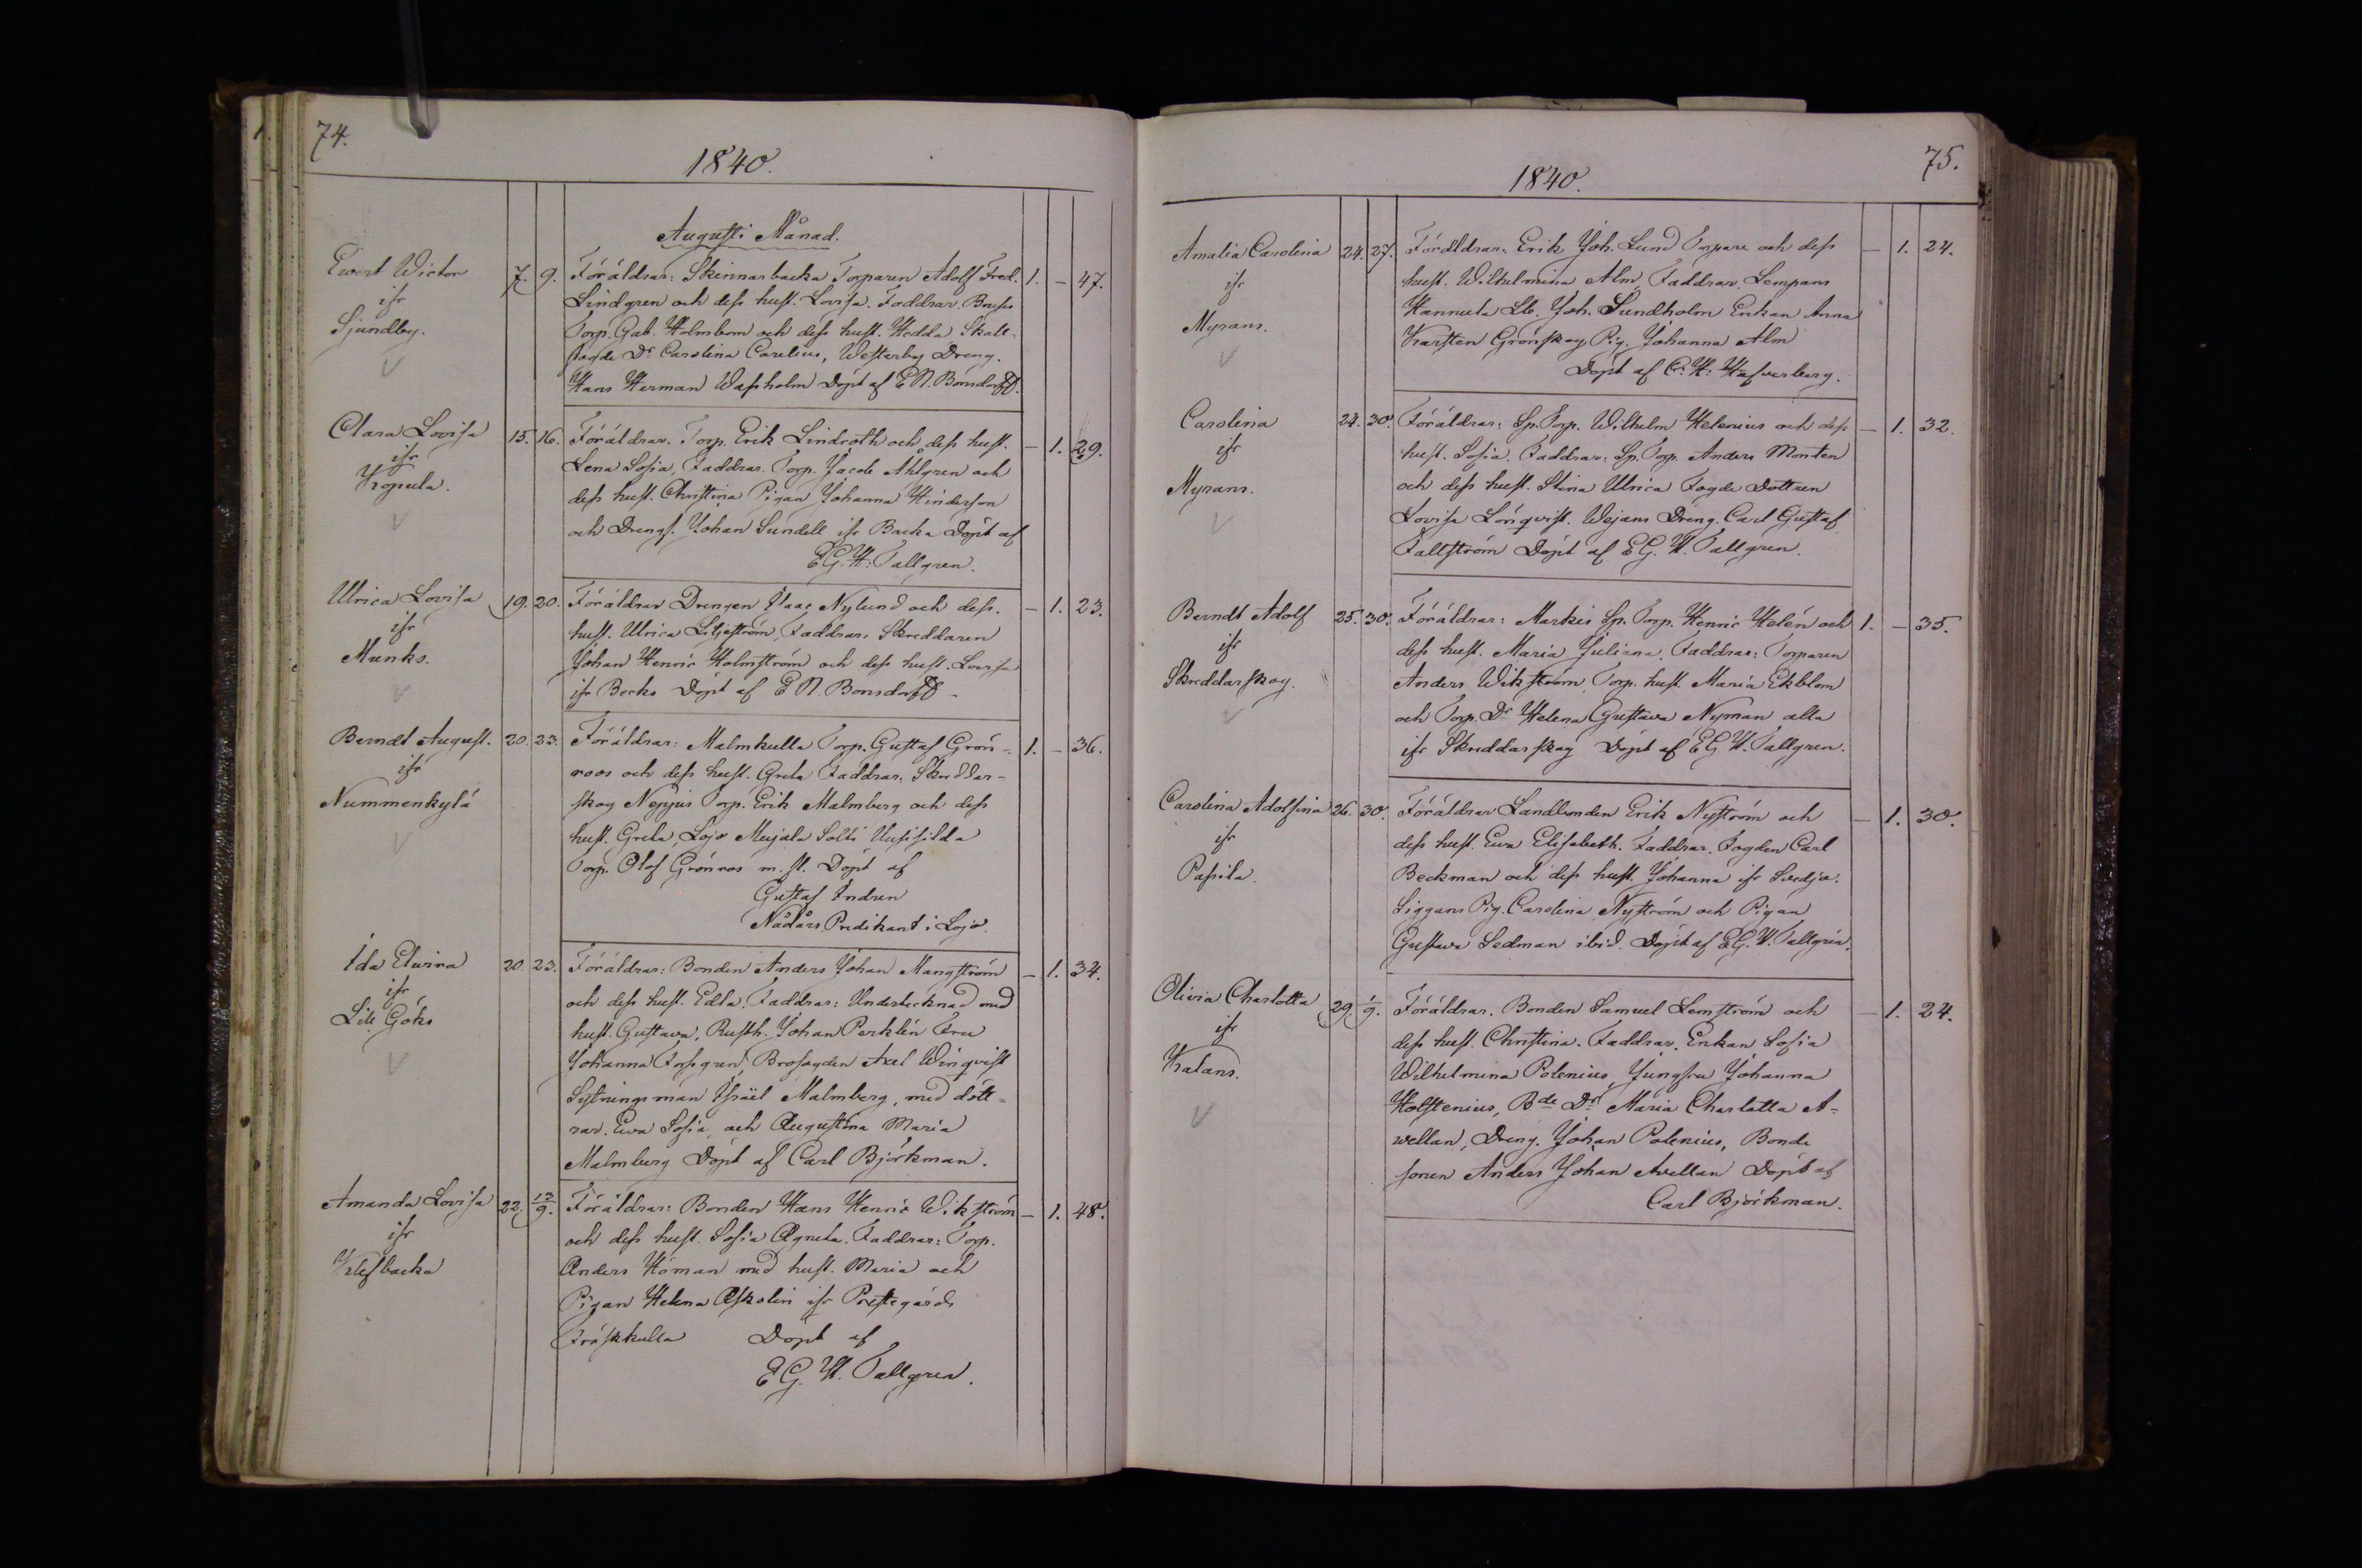 74.
1840.
Augusti Månad.
Evert Victor 7. 9. Föräldrar: Skinnarbacka Torparen Adolf Fred. 1. – 47.
ifr Lindgren och dess hust. Lovisa. Faddrar. Bruss
Sjundby. Torp. Gab. Holmbom och dess hust. Hedda Skatt-
fogde Dr Carolina Carelius, Westerby Dreng.
Hans Herman Wassholm Döpt af E N. Bonsdorff.
Clara Lovisa 15. 16. Föräldrar. Torp. Erik Lindroth och dess hust. – 1. 29.
ifr Lena Sofia, Faddrar. Torp. Jacob Åhlgren och
Kopula. dess hust. Christina Pigan Johanna Hinderson
och Drengs. Johan Sundell ifr Backa Döpt af
E G. H: Tallgren.
Ulrica Lovisa 19. 20. Föräldrar Drengen Isaac Nylund och dess. – 1. 23.
ifr hust. Ulrica Liljeström, Faddrar. Skreddaren
Munks. Johan Henric Holmström och dess hust. Lovisa
ifr Becks Döpt af E N. Bonsdorff
Berndt August. 20. 23. Föräldrar: Malmkulla Torp. Gustaf Grön- 1. – 36.
ifr roos och dess hust. Greta Faddrar. Skreddar-
Nummenkylä skog Neppis Torp. Erik Malmberg och dess
hust. Greta, Lojo Mujala Solti
Torp. Olof Grönros m. st. Döpt af
Gustaf Indren
Nådårs Predikant i Lojo.
Ida Elvira 20. 23. Föräldrar: Bonden Anders Johan Mangström – 1. 34.
ifr och dess hust. Edla. Faddrar: Undertecknad med
Lill Göks hust. Gustava, Rusth. Johan Perklén Fru
Johanna Forsgren, Brofogden Axel Winqvist
Sytningsman Israël Malmberg, med dött-
rar. Eva Sofia, och Augustina Maria
Malmberg Döpt af Carl Björkman.
Amanda Lovisa 22. 13/9. Föräldrar: Bonden Hans Henric Wikström – 1. 48.
ifr och dess hust. Sofia Agneta. Faddrar: Torp.
Klefbacka Anders Höman med hust. Maria och
Pigan Helena Askolin ifr Prestegårds
Fräskkulla Döpt af
E G. H. Tallgren.
75.
1840.
Amalia Carolina 24. 27. Föräldrar. Erik Joh. Lund Torpare och dess – 1. 24.
ifr hust. Wilhelmina Alm, Faddrar. Lempans
Myrans. Hannula Lb. Joh. Sundholm Enkan Anna
Karsten Grönskog Pig. Johanna Alm
Döpt af C. H: Hafverberg.
Carolina 24. 30. Föräldrar: Sp. Torp. Wilhelm Helenius och dess – 1. 32.
ifr hust. Sofia. Faddrar: Sp. Torp. Anders Monten
Myrans. och dess hust. Stina Ulrica Fogde Dottren
Lovisa Lönqvist. Wejans Dreng. Carl Gustaf
Fallström Döpt af E G. H. Tallgren.
Berndt Adolf 25. 30. Föräldrar: Markis Sp. Torp. Henric Helén och 1. – 35.
ifr dess hust. Maria Juliana. Faddrar: Torparen
Skreddarskog. Anders Wikström, Torp. hust. Maria Ekblom
och Torp. Dr Helena Gustava Nyman alla
ifr Skreddarskog Döpt af E G H. Tallgren.
Carolina Adolfina 26. 30. Föräldrar Landbonden Erik Nyström och – 1. 30.
ifr dess hust. Eva Elisabeth. Faddrar. Fogden Carl
Passila. Beckman och dess hust. Johanna ifr Svedja.
Siggans Pig. Carolina Nyström och Pigan
Gustava Sedman ibid. Döpt af E G. H. Tallgren.
Olivia Charlotta 29. 1/9. Föräldrar. Bonden Samuel Lemström och – 1. 24.
ifr dess hust. Christina. Faddrar. Enkan Sofia
Kalans. Wilhelmina Polenius, Jungfru Johanna
Holstenius, Bde Dr Maria Charlotta A-
vellan, Dreng. Johan Polenius, Bonde
sonen Anders Johan Avellan Döpt af
Carl Björkman.